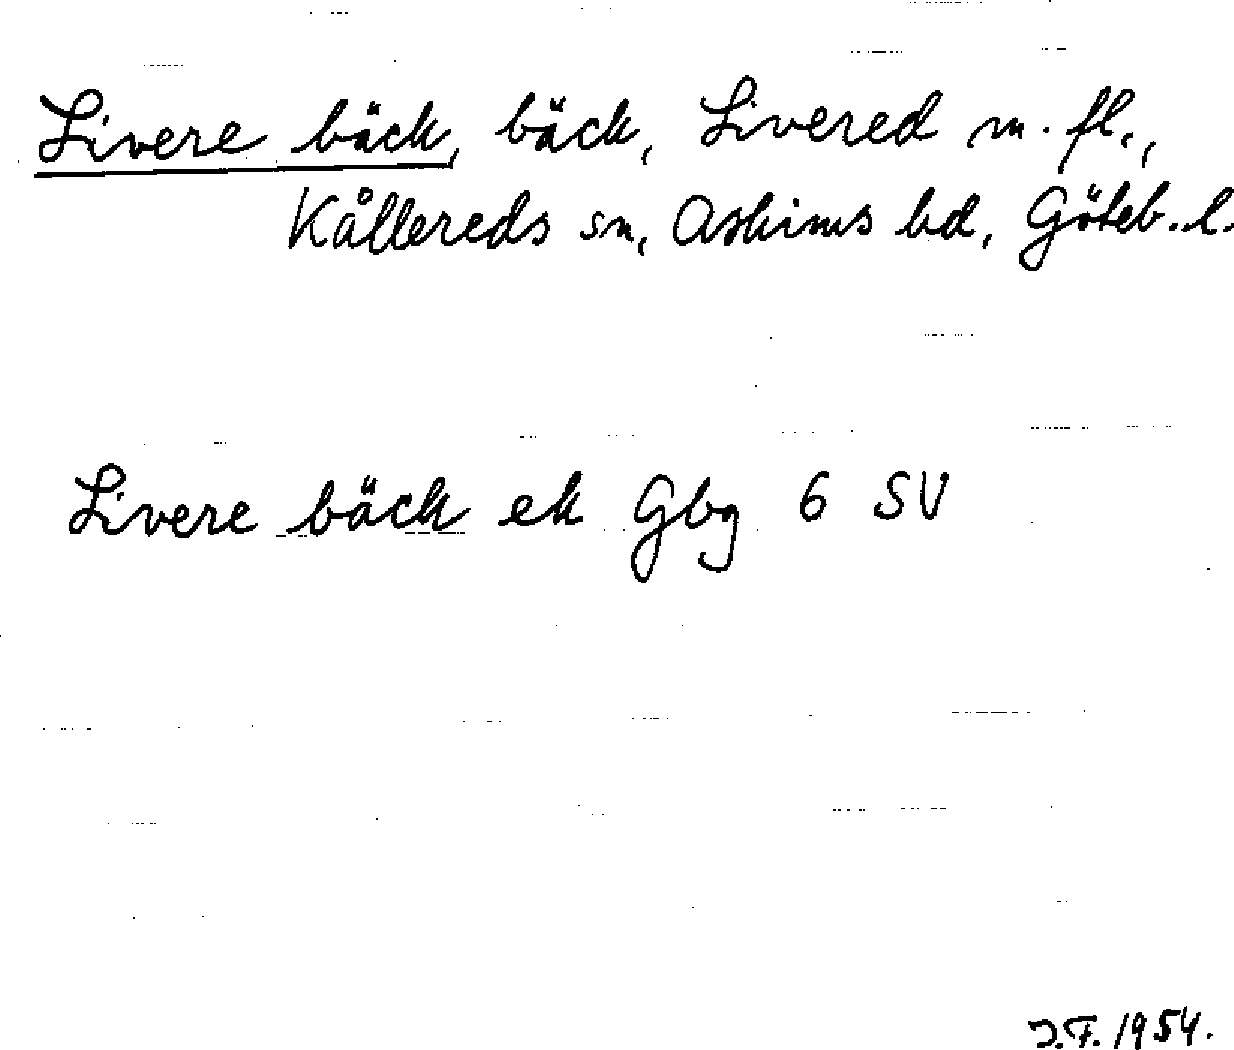 Livere bäck, bäck, Livered m. fl.,
Kållereds sn, Askims hd, Göteb. l.
Livere bäck ek Gbg 6 SV
J.F. 1954.